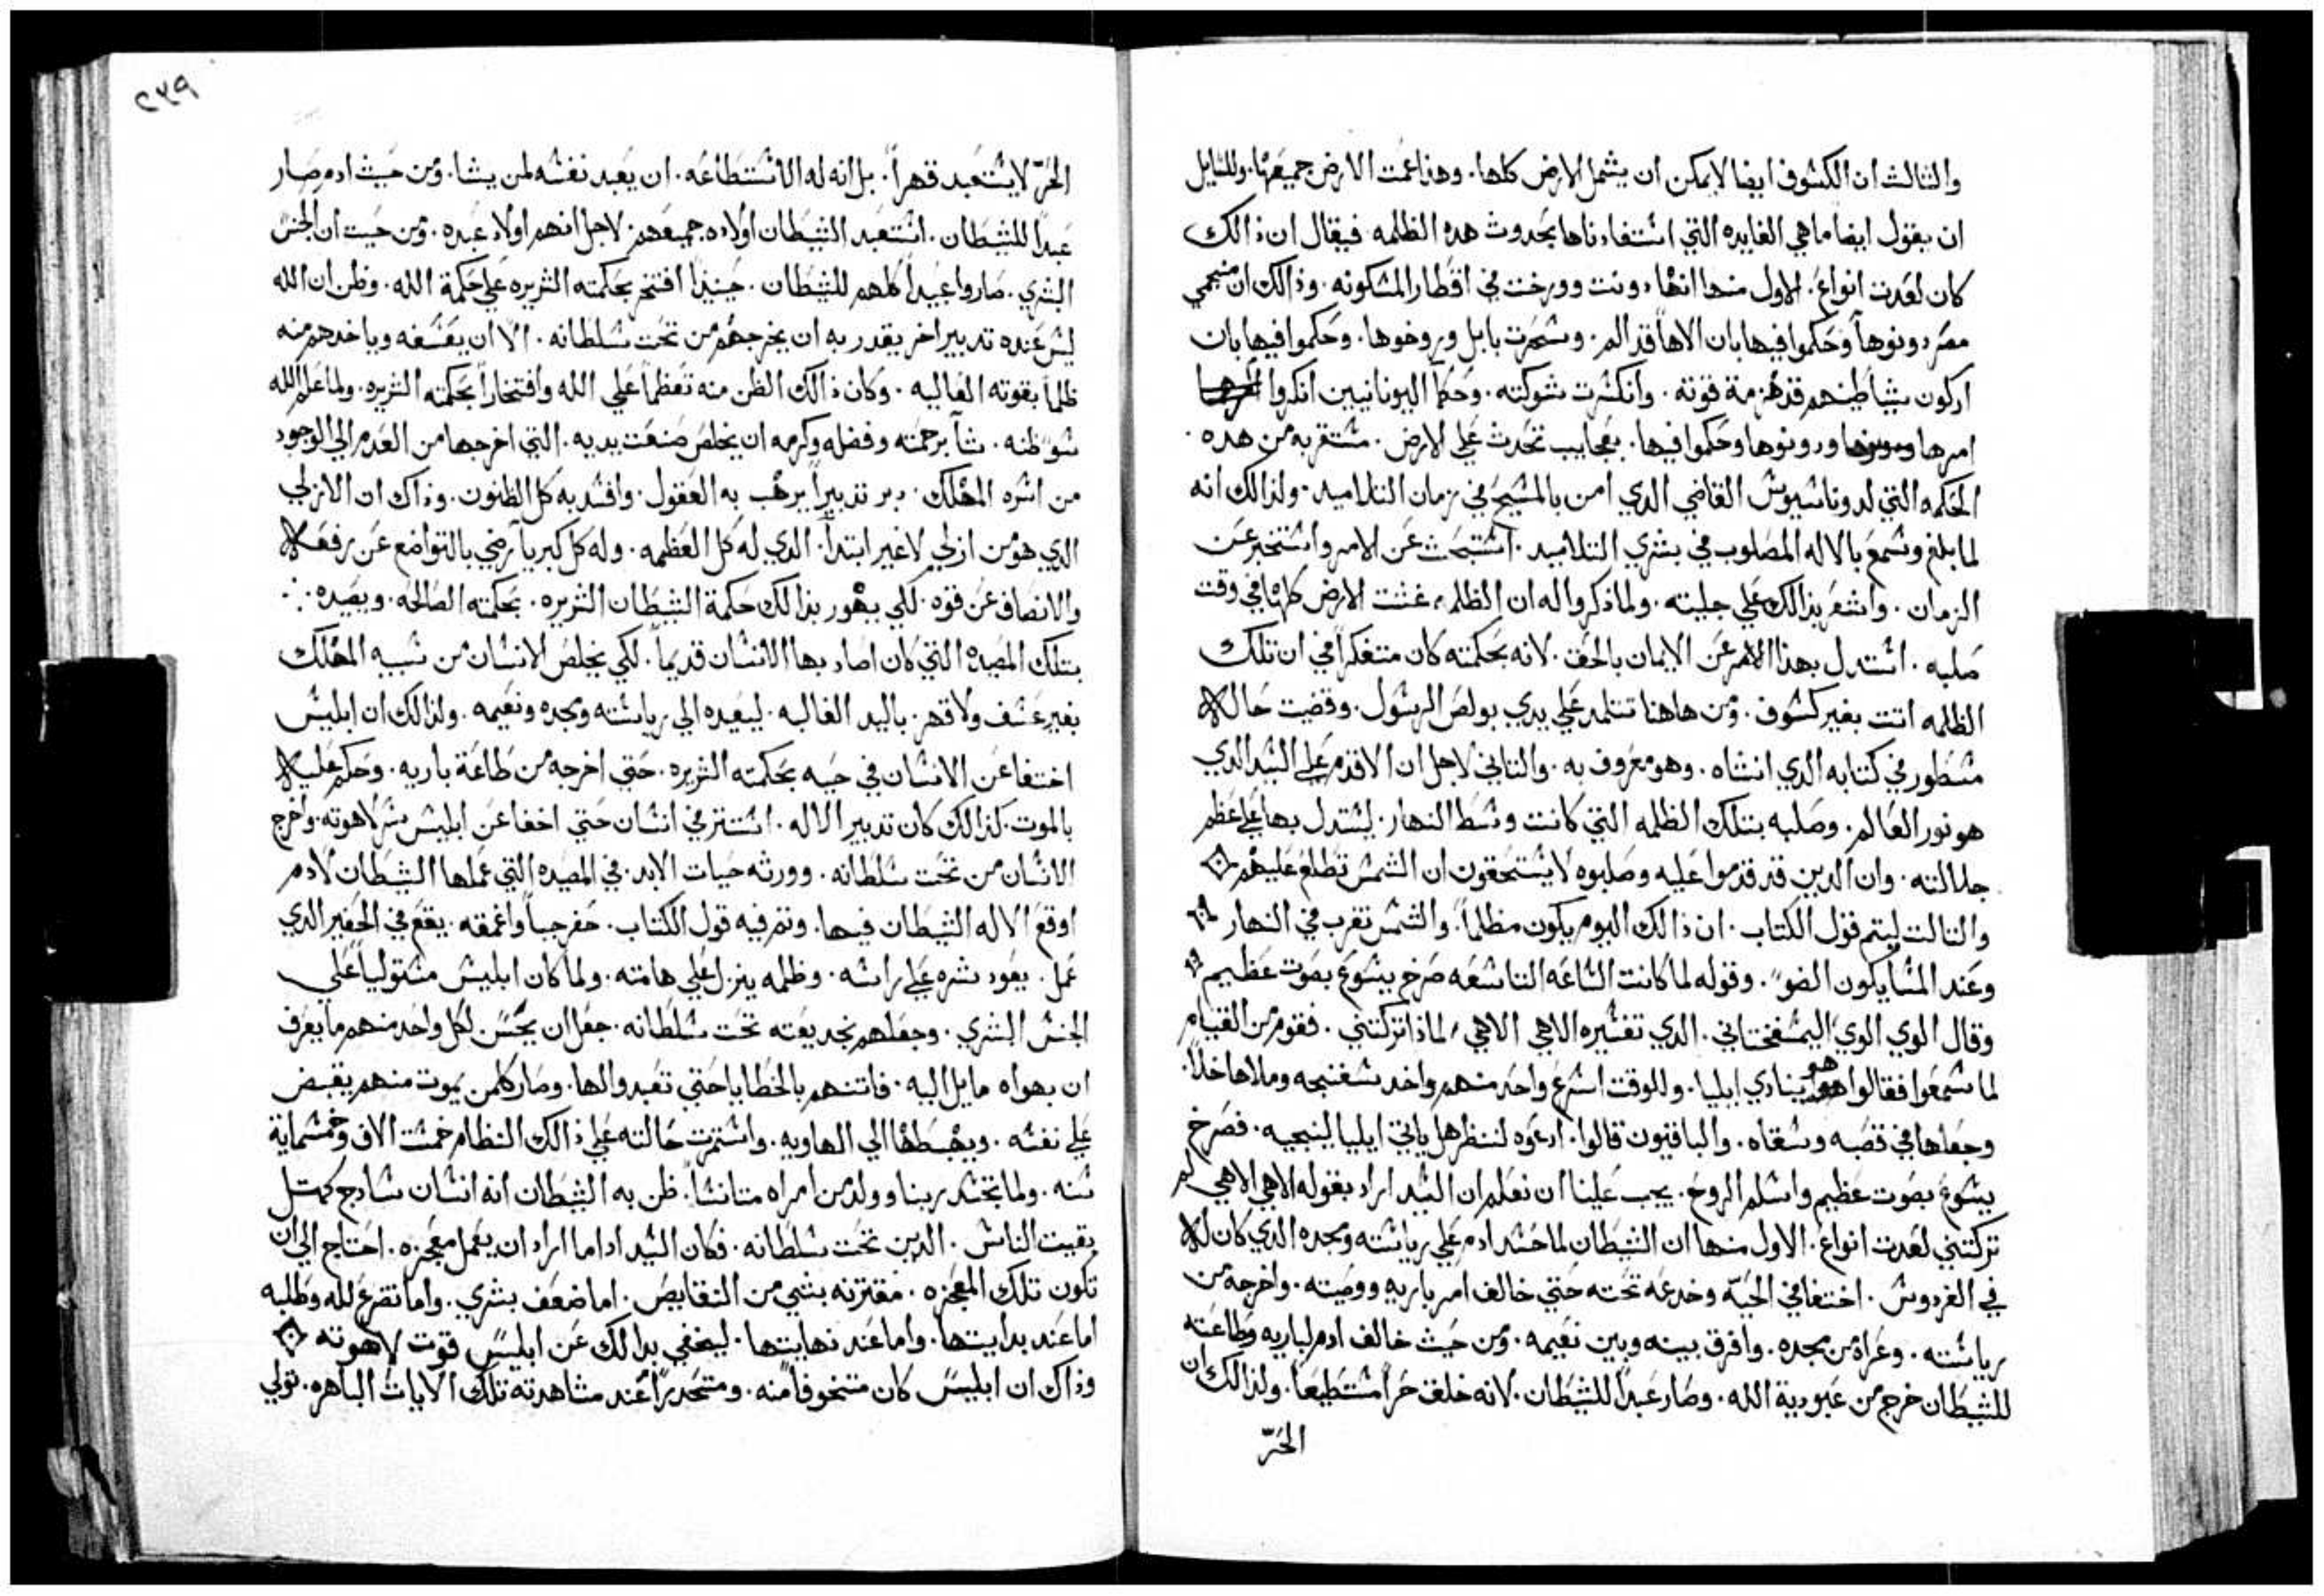 والثالث ان الكسوف ايضا لا يمكن ان يشمل الارض كلها. وهذا عمت الارض جميعها. وللسايل
ان يقول ايضا ما هي الفايده التي استفادناها بحدوث هده الظلمه فيقال ان ذالك
كان لعدت انواع. الاول منها انها دونت وورخت في اقطار المسكونه. وذالك ان منجمي
مصر دونوها وحكموا فيها بان الاهاً قد الم. وسحرت بابل وروخوها. وحكموا فيها بان
اركون شياطينهم قد هزمة قوته. وانكسرت شوكته. وحكما اليونانيين انكروا
امرها ودونوها وحكموا فيها. بعجايب تحدث علي الارض. مستقربه من هده.
الحكمه التي لدوناسيوس القاضي الدي امن بالمسيح في زمان التلاميد. ولذالك انه
لما بلغ وسمع بالاله المصلوب في بشري التلاميد. استبحث عن الامر واستخبر عن
الزمان. واشعر بذالك علي جليته. ولما ذكروا له ان الظلمه غشت الارض كلها في وقت
صلبه. استدل بهذا الامر عن الايمان بالحق. لانه بحكمته كان متفكراً في ان تلك
الظلمه اتت بغير كسوف. ومن هاهنا تتلمد علي يدي بولص الرسول. وقضيت حاله
مسطور في كتابه الدي انشاه. وهو معروف به. والتاني لاجل ان الاقدم علي السيد الدي
هو نور العالم. وصلبه بتلك الظلمه التي كانت وسط النهار. ليستدل بها علي عظم
جلالته. وان الدين قد قدموا عليه وصلبوه لا يستحقون ان الشمس تطلع عليهم
والتالت ليتم قول الكتاب. ان ذالك اليوم يكون مظلماً. والشمس تغرب في النهار
وعند المسا يكون الضو. وقوله لما كانت الساعه التاسعه صرخ يسوع بصوت عظيم
وقال الوي الوي اليمشفختاني. الدي تفسيره الاهي الاهي لماذا تركتني. فقوم من القيام
لما سمعوا فقالوا هو ينادي ايليا. وللوقت اسرع واحد منهم واخد سفنجه وملاها خلاً.
وجعلها في قصبه وسقاه. والباقيون قالوا. ادعوه لننظر هل ياتي ايليا لينجيه. فصرخ
يسوع بصوت عظيم واسلم الروح. يجب علينا ان نعلم ان السيد اراد بقوله الاهي الاهي لم
تركتني لعدت انواع. الاول منها ان الشيطان لما حسد ادم علي رياسته ومجده الدي كان له
في الفردوس. اختفا في الحيه وخدعه تحته حتي خالف امر باريه ووصيته. واخرجه من
رياسته. وعراه من مجده. وافرق بينه وبين نعيمه. ومن حيث خالف ادم لباريه وطاعته
للشيطان خرج من عبودية الله. وصار عبداً للشيطان. لانه خلق حراً مستطيعاً. ولذالك ان
الحر
٢٣٩
الحر لا يستعبد قهراً. بل انه له الاستطاعه. ان يعبد نفسه لمن يشا. ومن حيث ادم صار
عبداً للشيطان. استعبد الشيطان اولاده جميعهم. لاجل انهم اولاد عبده. ومن حيت ان الجنس
البشري. صاروا عبيداً كلهم للشيطان. حينيذاً افتخر بحكمته الشريره علي حكمة الله. وظن ان الله
ليس عنده تدبير اخر يقدر به ان يخرجهم من تحت سلطانه. الا ان يغشفه وياخدهم منه
ظلماً بقوته الغاليه. وكان ذالك الظن منه تعظماً علي الله وافتخاراً بحكمته الشريره. ولما علم الله
سو ظنه. شاً برحمته وفضله وكرمه ان يخلص صنعت يديه. التي اخرجها من العدم الي الوجود
من اشره المهلك. دبر تدبيراً يرهب به العقول. وافسد به كل الظنون. وذاك ان الازلي
الدي هو من ازلي لا غير ابتداً. الدي له كل العظمه. وله كل كبريا رضي بالتواضع عن رفعه
والانصاف عن قوه. لكي يهور بذالك حكمة الشيطان الشريره. بحكمته الصالحه. ويصيده
بتلك المصيده التي كان اصاد بها الانسان قديماً. لكي يخلص الانسان من سبيه المهلك
بغير عسف ولا قهر. باليد الغالبه. ليعيده الي رياسته ومجده ونعيمه. ولذالك ان ابليس
اختفا عن الانسان في حيه بحكمته الشريره. حتي اخرجه من طاعة باريه. وحكم عليه
بالموت. كذالك كان تدبير الاله. استتر في انسان حتي اخفا عن ابليس سر لاهوته. واخرج
الانسان من تحت سلطانه. وورثه حيات الابد. في المصيده التي عملها الشيطان لادم
اوقع الاله الشيطان فيها. وتم فيه قول الكتاب. حفر جباً واغمقه. يقع في الحفير الدي
عمل. يعود شره علي راسه. وظلمه ينزل علي هامته. ولما كان ابليس مستولياً علي
الجنس البشري. وجعلهم بخديعته تحت سلطانه. جعل ان يحسن لكل واحد منهم ما يعرف
ان بهواه مايل اليه. فاتنهم بالخطايا حتي تعبدوا لها. وصار كلمن يموت منهم يقبض
علي نفسه. ويهبطها الي الهاويه. واستمرت حالته علي ذالك النظام خمست الاف وخمسماية
سنه. ولما تجسد ربنا وولد من امراه متانساً. ظن به الشيطان انه انسان سادج كمتل
بقيت الناس. الدين تحت سلطانه. فكان السيد اداما اراد ان يعمل معجزه. احتاج الي ان
تكون تلك المعجزه. مقترنه بشي من النقايص. اما ضعف بشري. واما تضرع لله وطلبه
اما عند بدايتها. واما عند نهايتها. ليخفي بدالك عن ابليس قوت لاهوته
وذاك ان ابليس كان متخوفاً منه. ومتحدراً عند مشاهدته تلك الايات الباهره. تولي